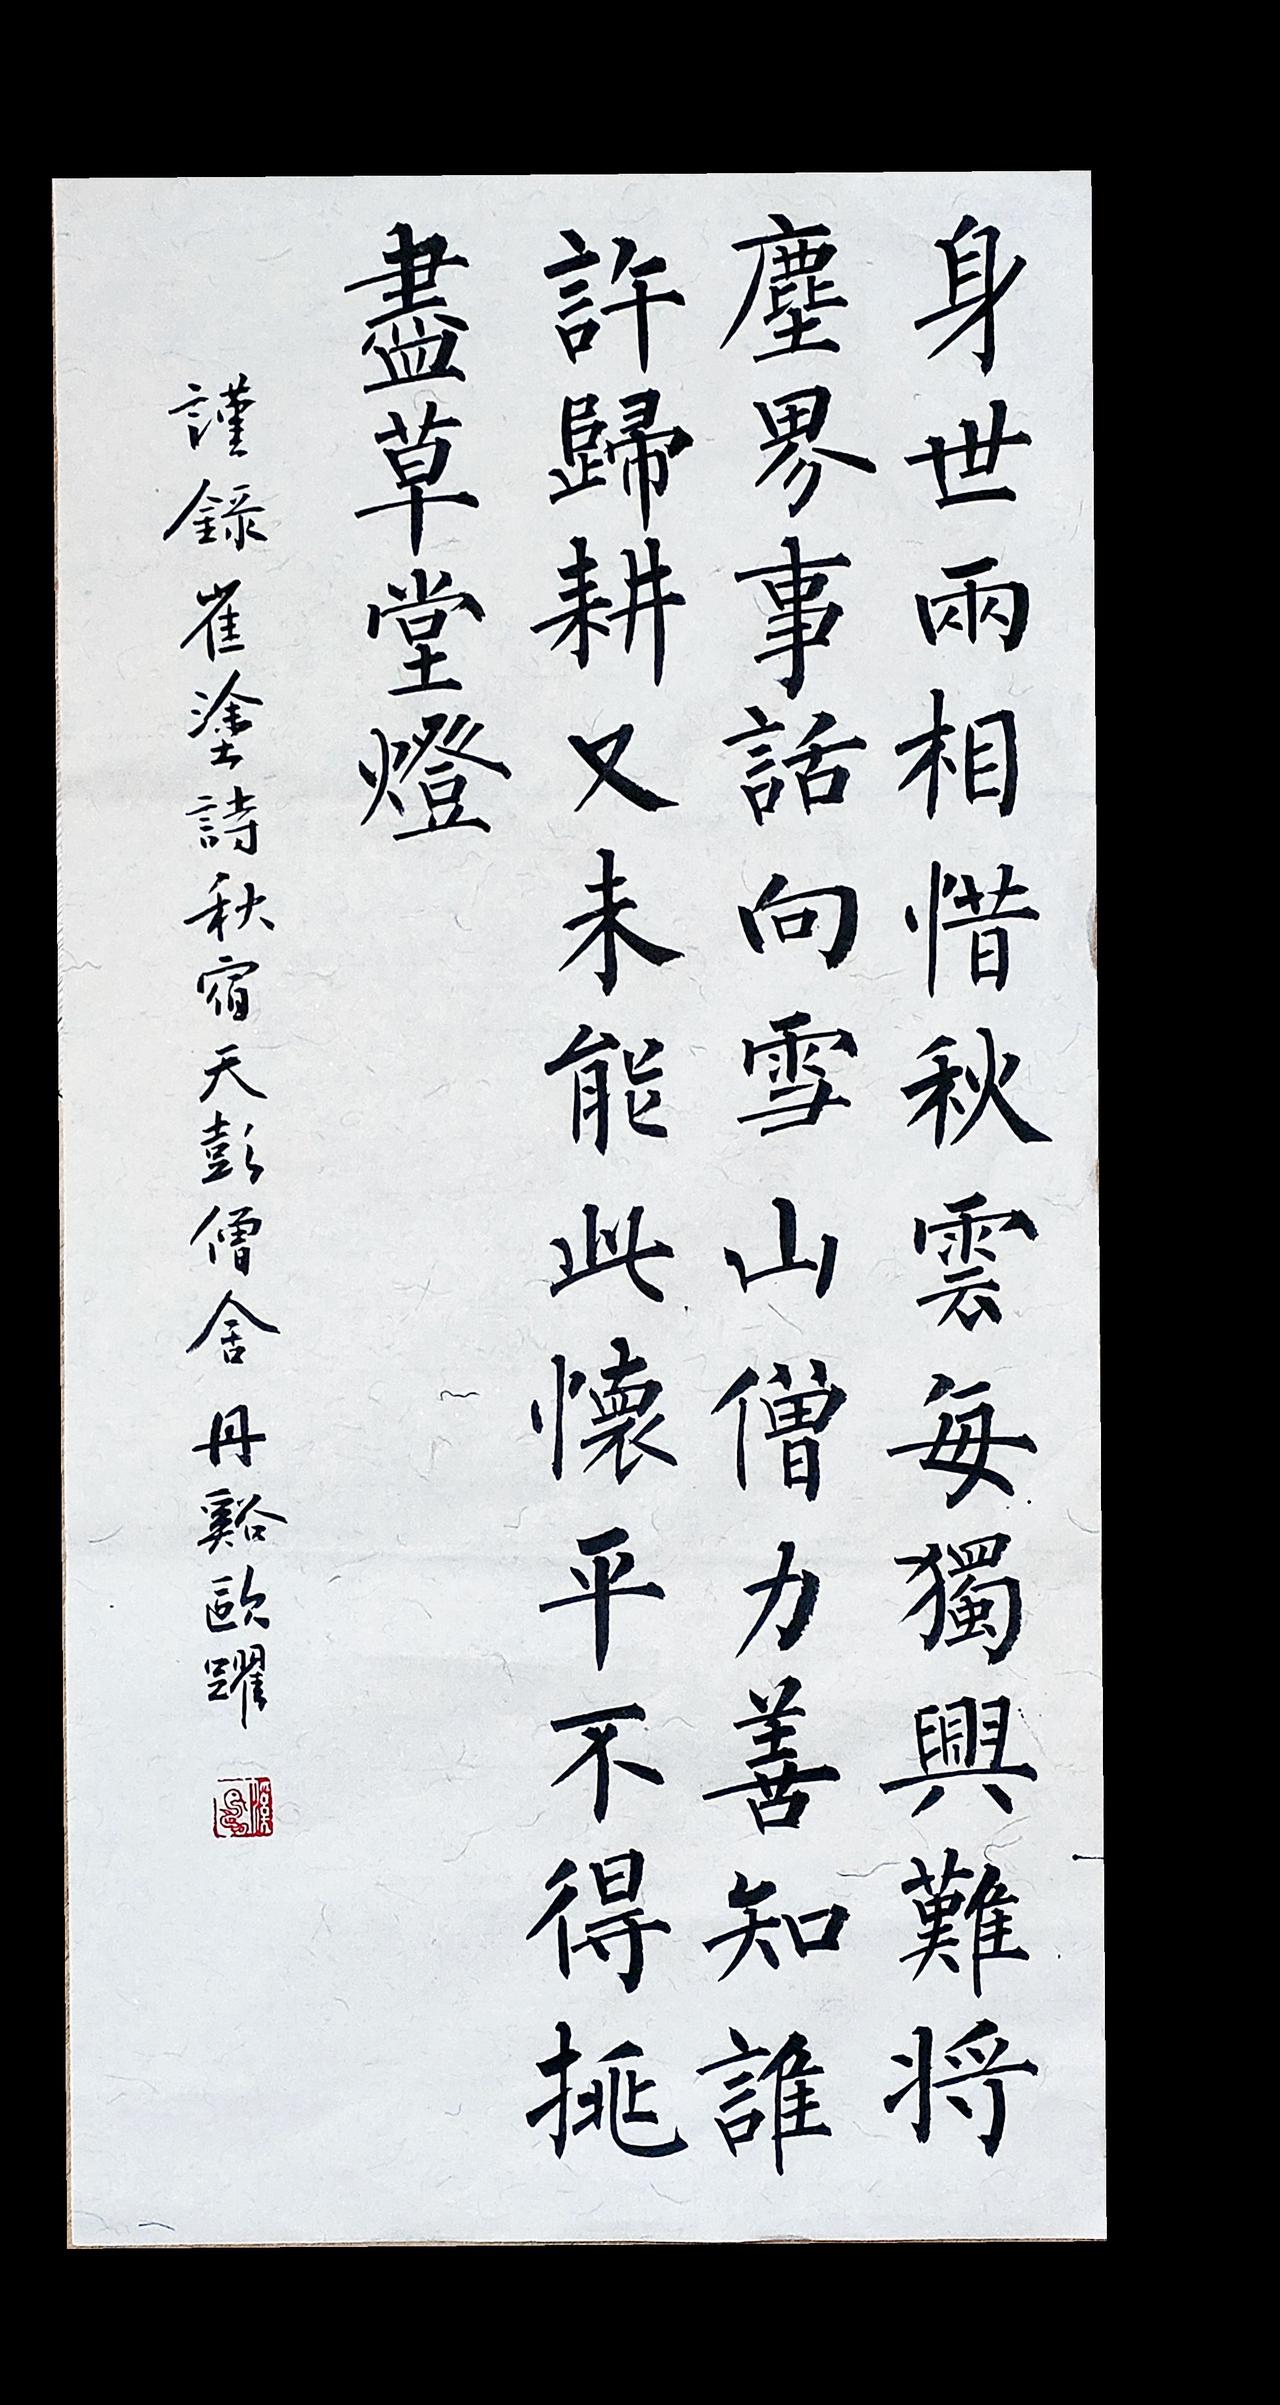 身世兩相惜秋雲每獨興難将
塵界事話向雪山僧力善知誰
許歸耕又未能此懷平不得挑
盡草堂燈
謹錄崔塗詩秋宿天彭僧舍丹谿歐躍